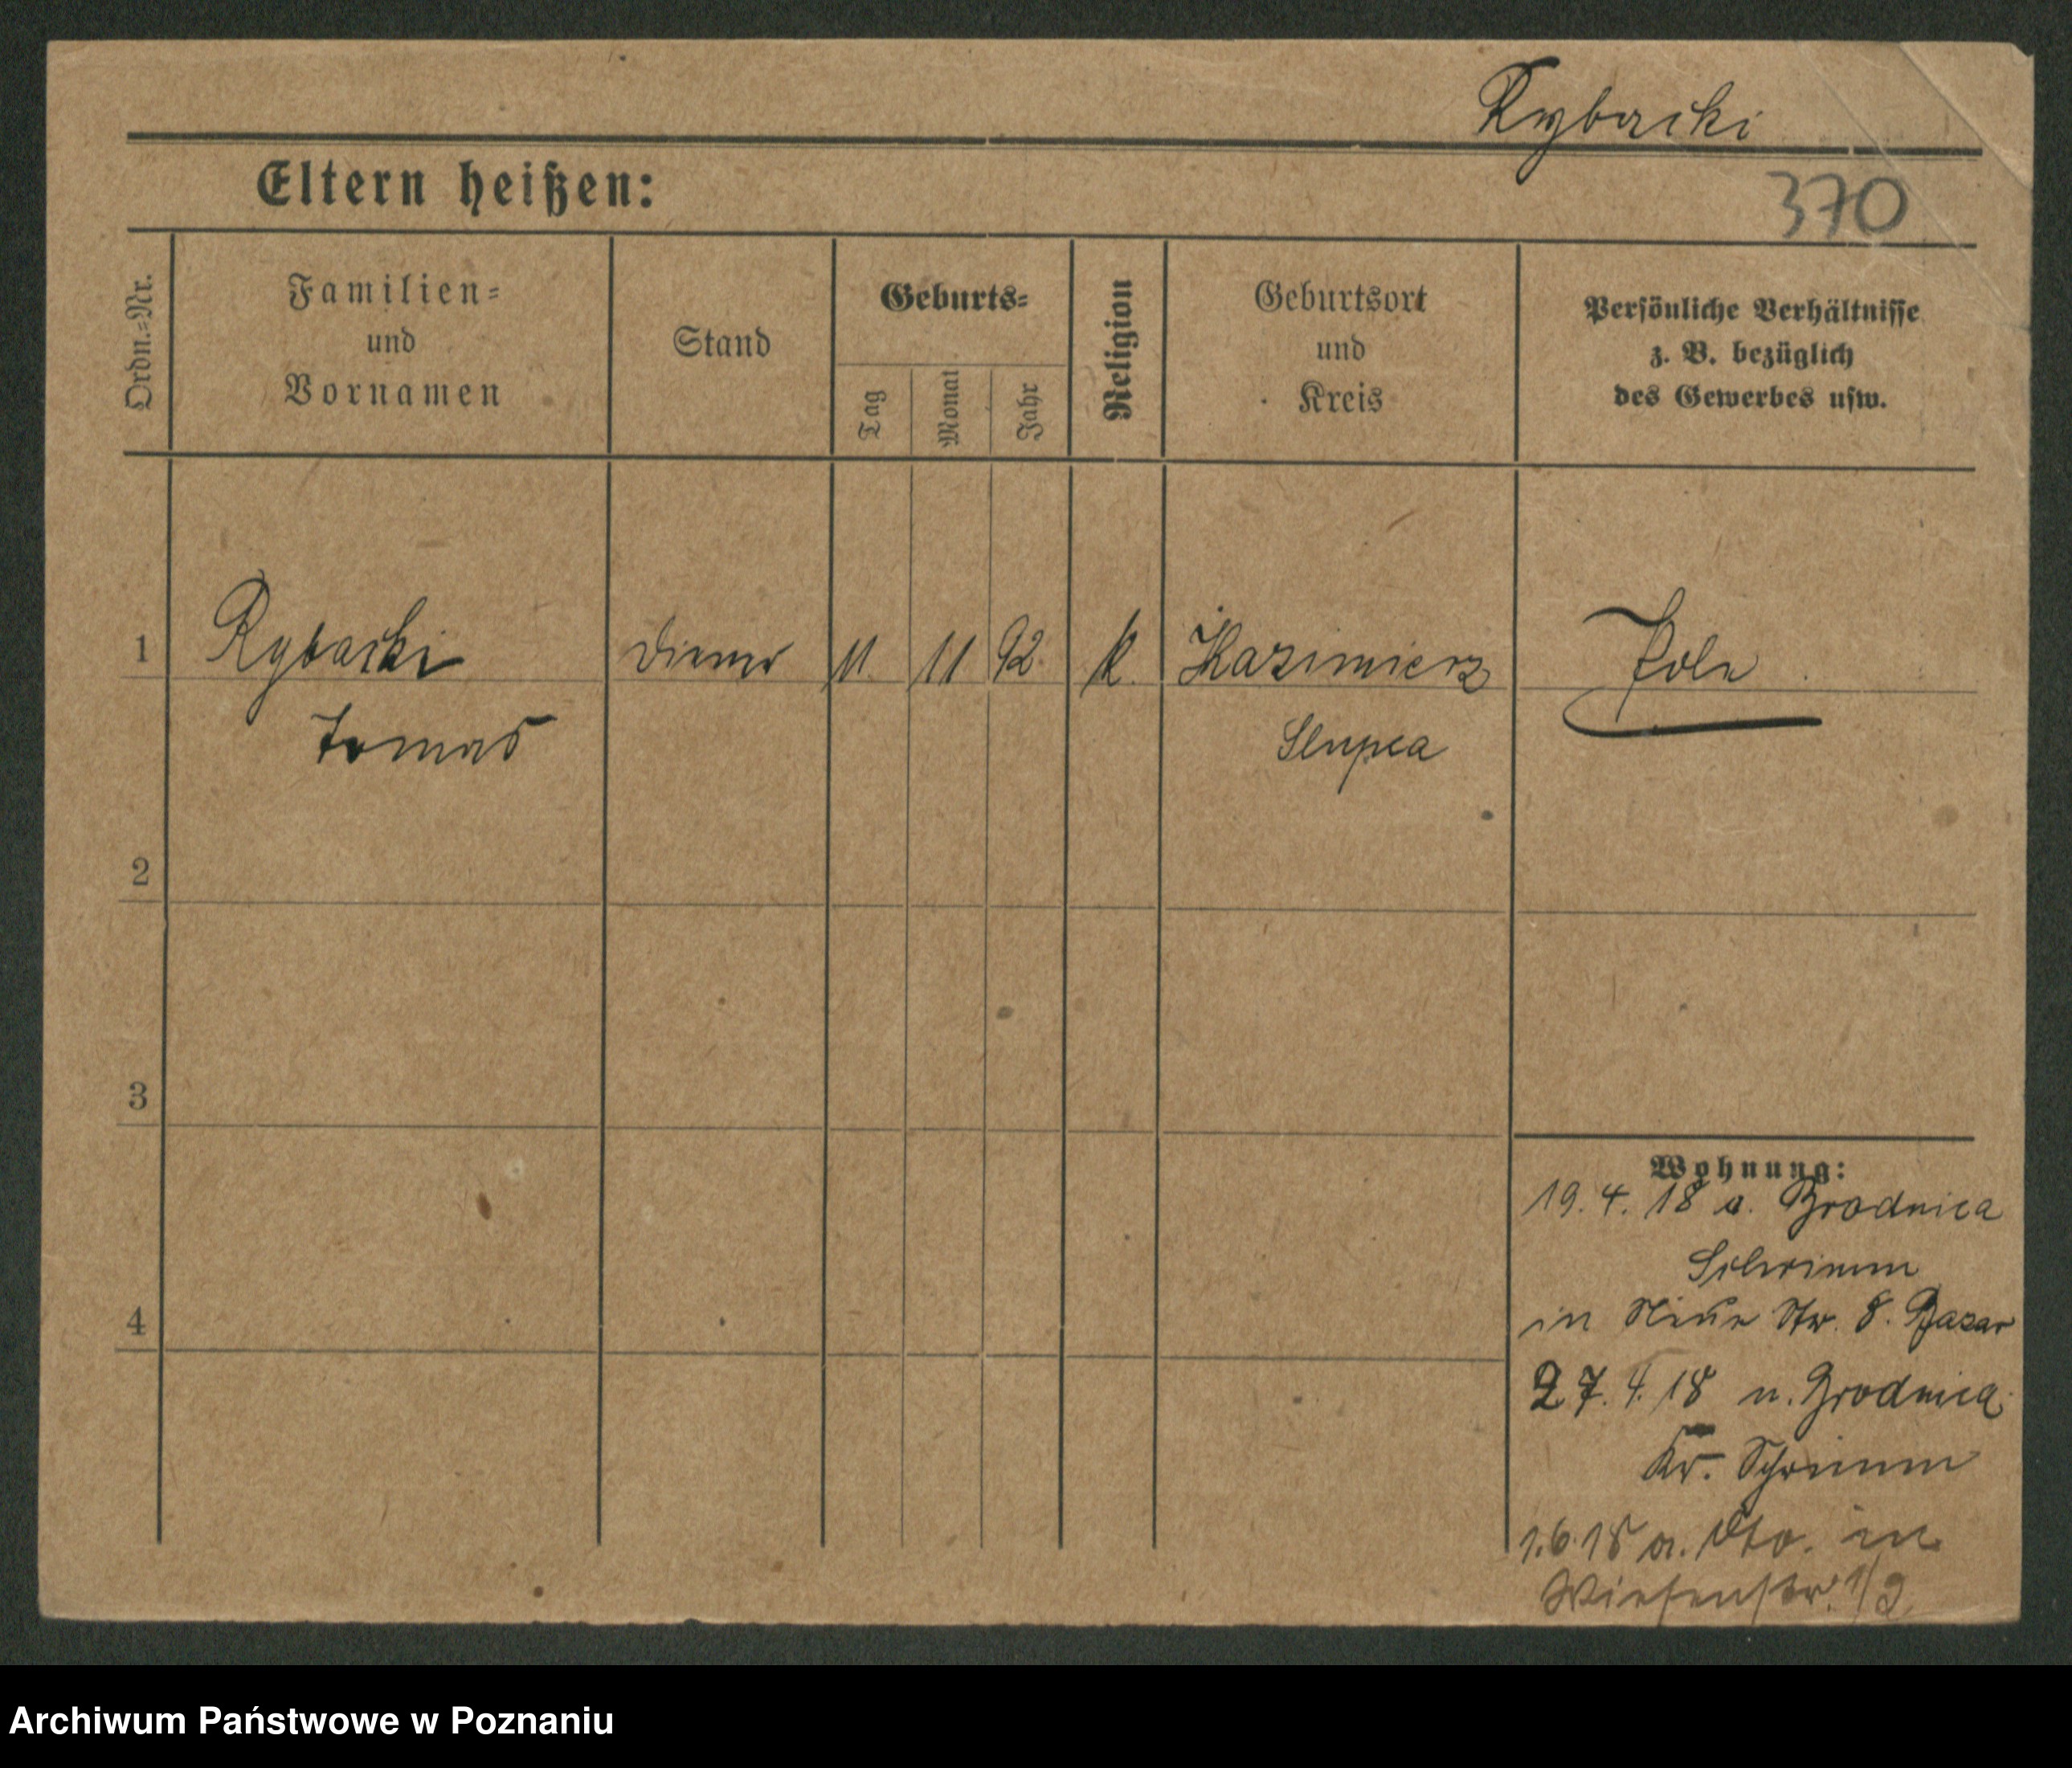 Rybacki
Eltern heißen:
370
Ordn.=Nr.
Familien=
und
Vornamen
Stand
Geburts=
Tag
Monat
Jahr
Religion
Geburtsort
und
Kreis
Persönliche Verhältnisse
z. B. bezüglich
des Gewerbes usw.
1 Rybacki Diener 11. 11 92. k. Kazimierz Pole
Tomas Slupca
2
3
4
Wohnung:
19. 4. 18 a. Brodnica
Schrimm
in Neue Str. 8. Bazar
27. 4. 18 n. Brodnica
Kr. Schrimm
1.6.18 a. dto. in
Wiesenstr. 1/2
Archiwum Państwowe w Poznaniu